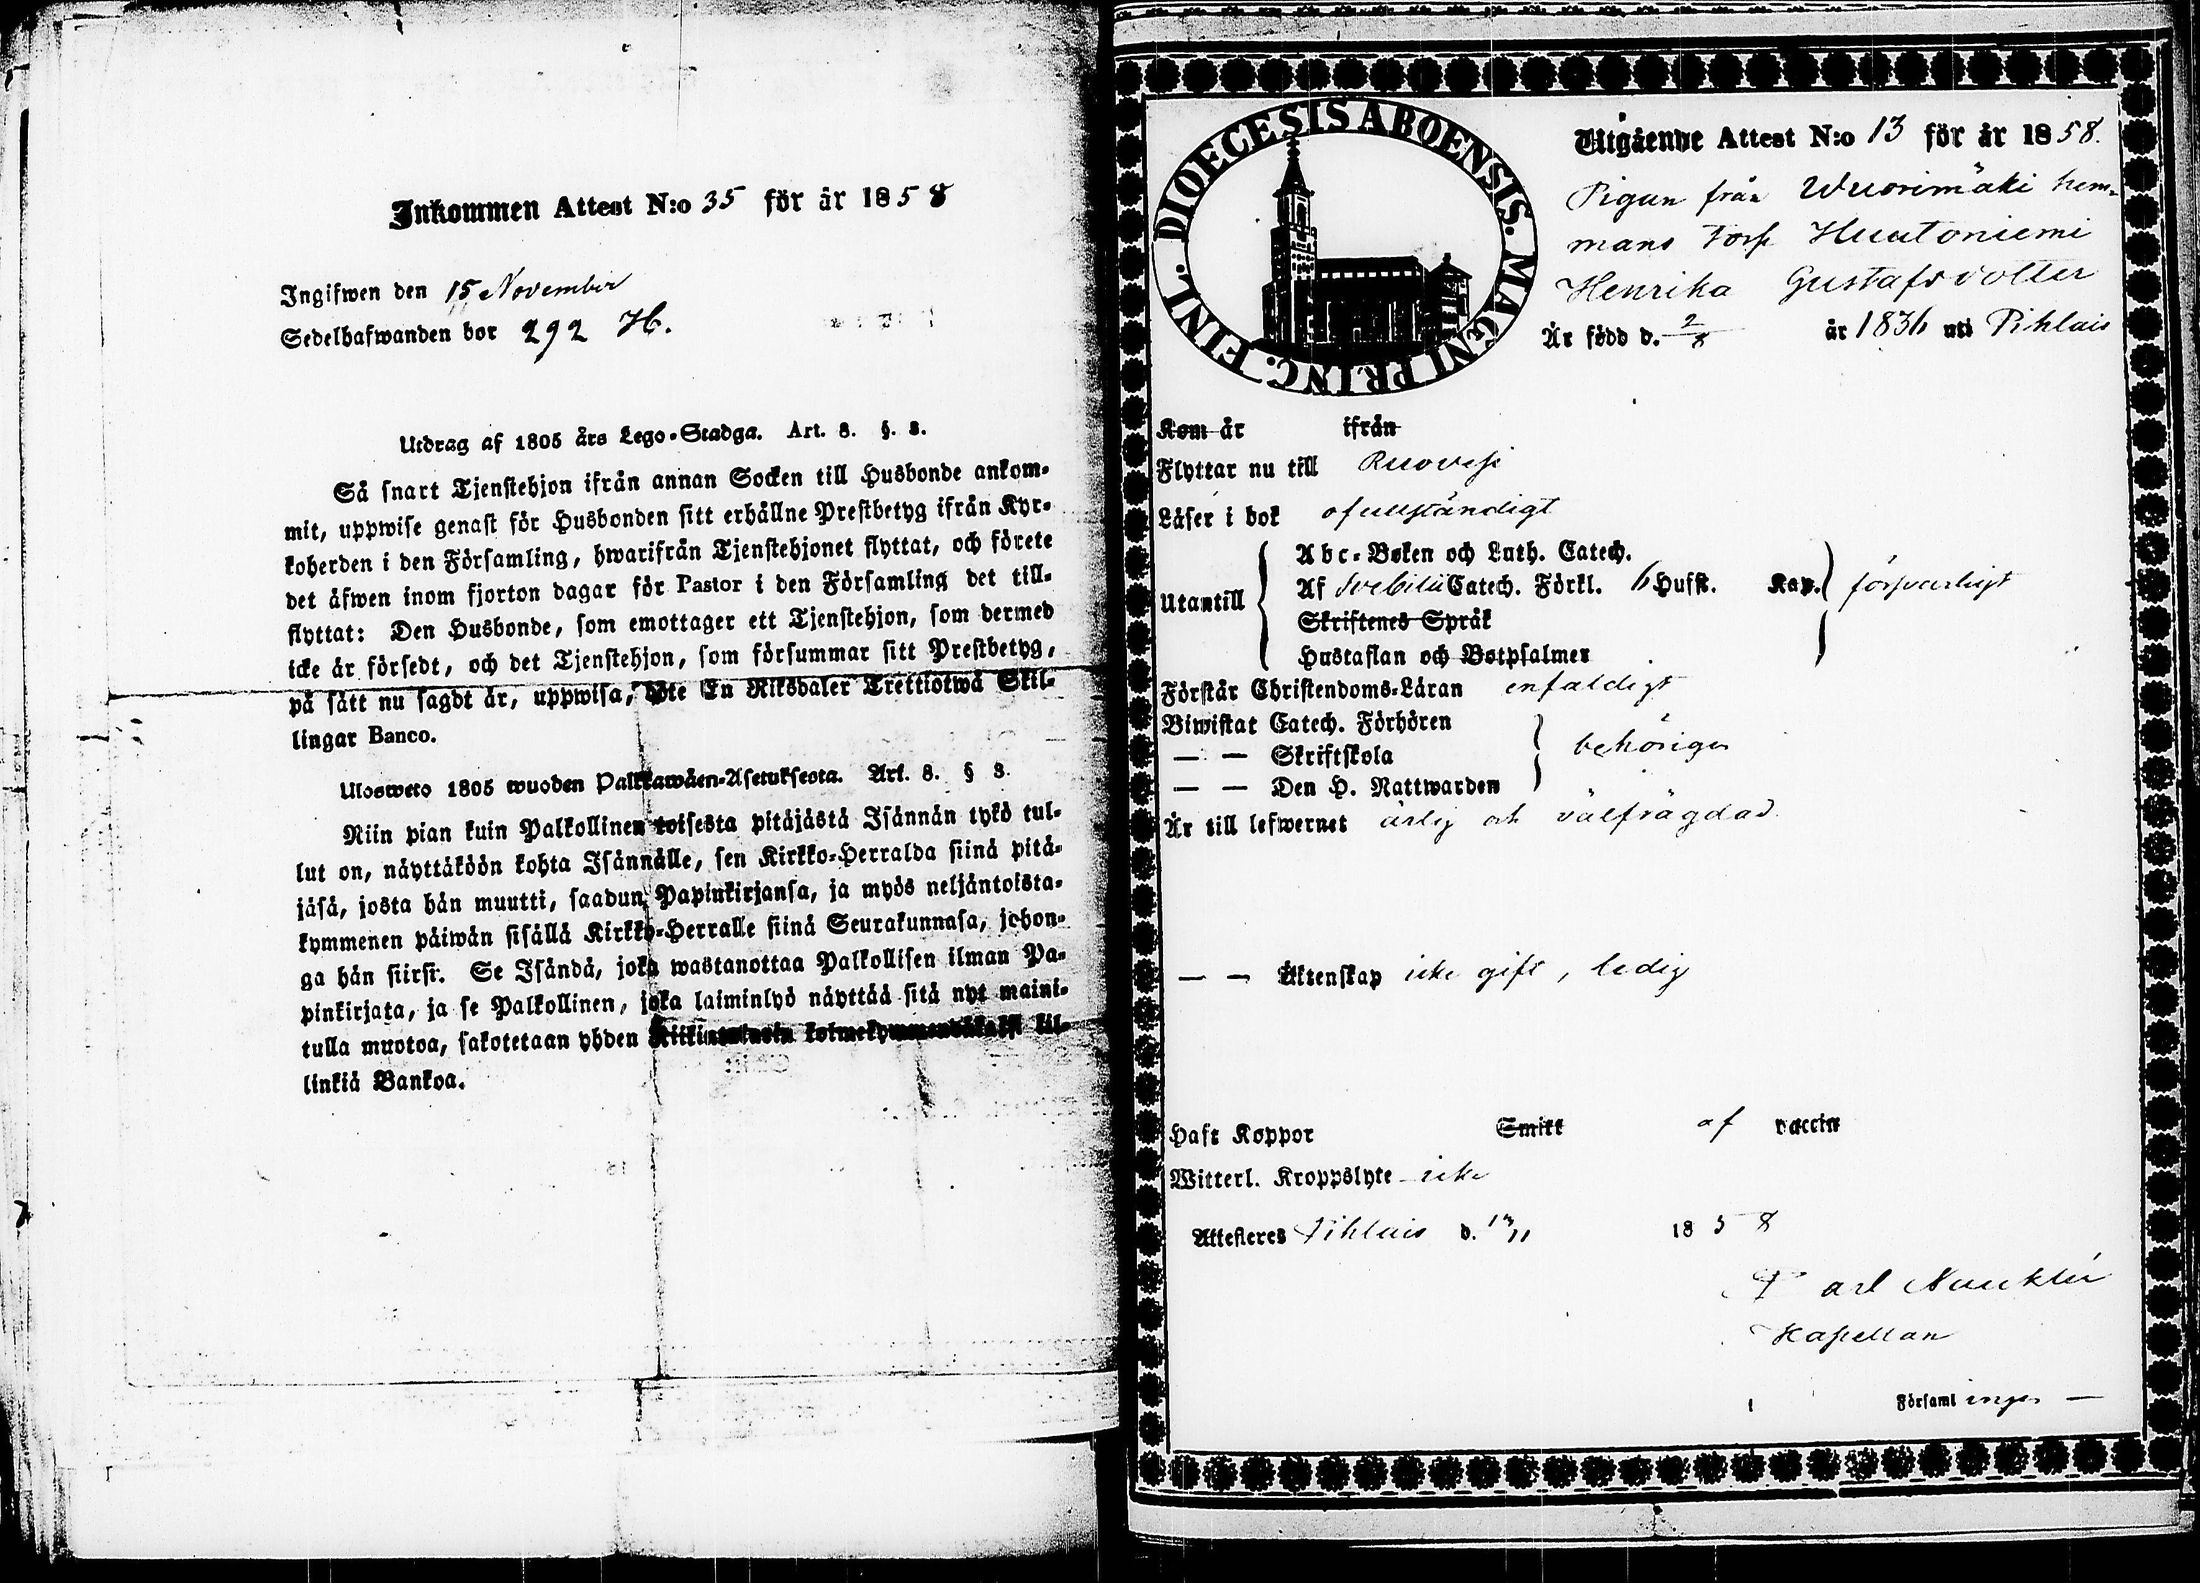 Inkommen Attest N:o 35 för år 1858
Ingifwen den 15 November
Sedelhafwanden bor 292 H.
Utdrag af 1805 års Lego-Stadga. Art. 8. §. 3.
Så snart Tjenstehjon ifrån annan Socken till Husbonde ankom-
mit, uppwise genast för Husbonden sitt erhållne Prestbetyg ifrån Kyr-
koherden i den Församling, hwarifrån Tjenstehjonet flyttat, och förete
det äfwen inom fjorton dagar för Pastor i den Församling det till-
flyttat: Den Husbonde, som emottager ett Tjenstehjon, som dermed
icke är försedt, och det Tjenstehjon, som försummar sitt Prestbetyg,
på sätt nu sagdt är, uppwisa, böte En Riksdaler Trettiotwå Skil-
lingar Banco.
Ulosweto 1805 wuoden Palkkawäen-Asetuksesta. Art. 8. § 3.
Niin pian kuin Palkollinen toisesta pitäjästä Isännän tykö tul-
lut on, näyttäköön kohta Isännälle, sen Kirkko-Herralda siinä pitä-
jäsä, josta hän muutti, saadun Papinkirjansa, ja myös neljäntoista-
kymmenen päiwän sisällä Kirkko-Herralle siinä Seurakunnasa, johon-
ga hän siirsi. Se Isändä, joka wastanottaa Palkollisen ilman Pa-
pinkirjata, ja se Palkollinen, joka laiminlyö näyttää sitä nyt maini-
tulla muotoa, sakotetaan yhden kil-
linkiä Bankoa.
DIOECESIS ABOENSIS. MAGNI PRINC. FINL.
Utgående Attest N:o 13 för år 1858.
Pigan från Wuorimäki hem-
mans Torp Huutoniemi
Henrika Gustafsdotter
Är född d. 2/8 år 1836 uti Pihlais
Kom år ifrån
Flyttar nu till Ruovesi
Läser i bok ofullständigt
Abc-Boken och Luth. Catech.
Utantill Af Svebilii Catech. Förkl. 6 Hufst. Kap. försvarligt
Skriftenes Språk
Hustaflan och Botpsalmer
Förstår Christendoms-Läran enfaldigt
Biwistat Catech. Förhören
— — Skriftskola behörigen
— — Den H. Nattwarden
Är till lefwernet ärlig och välfrägdad
— — Äktenskap icke gift, ledig
Haft Koppor Smitt af vaccin
Witterl. Kroppslyte icke
Attesteres Pihlais d. 13/11 1858
Carl
Kapellan
Församlingen —